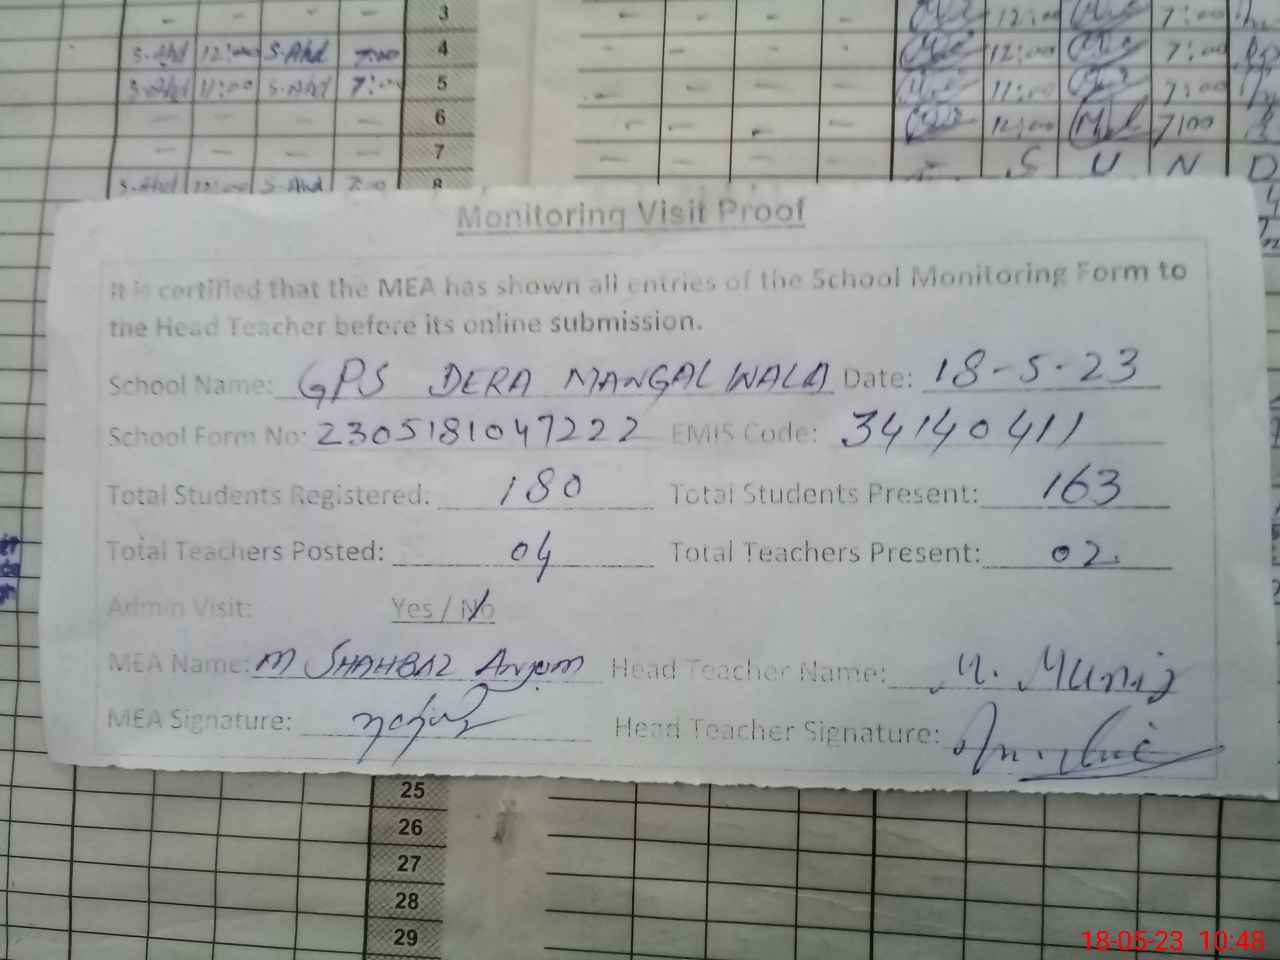 3
12:00 7:00
S.Ahd 12:00 S.Ahd 7:00 4 12:00 7:00
S.Ahd 11:00 S.Ahd 7:00 5 11:00 7:00
6 12:00 7:00
7 S U N D
S.Ahd 12:00 S.Ahd 7:00 8
Monitoring Visit Proof
It is certified that the MEA has shown all entries of the School Monitoring Form to
the Head Teacher before its online submission.
School Name: GPS DERA MANGAL WALA Date: 18-5-23
School Form No: 2305181047222 EMIS Code: 34140411
Total Students Registered: 180 Total Students Present: 163
Total Teachers Posted: 04 Total Teachers Present: 02.
Admin Visit: Yes / No
MEA Name: M SHAHBAZ Anjum Head Teacher Name: M. Munir
MEA Signature: Head Teacher Signature:
25
26
27
28
29
18-05-23 10:48